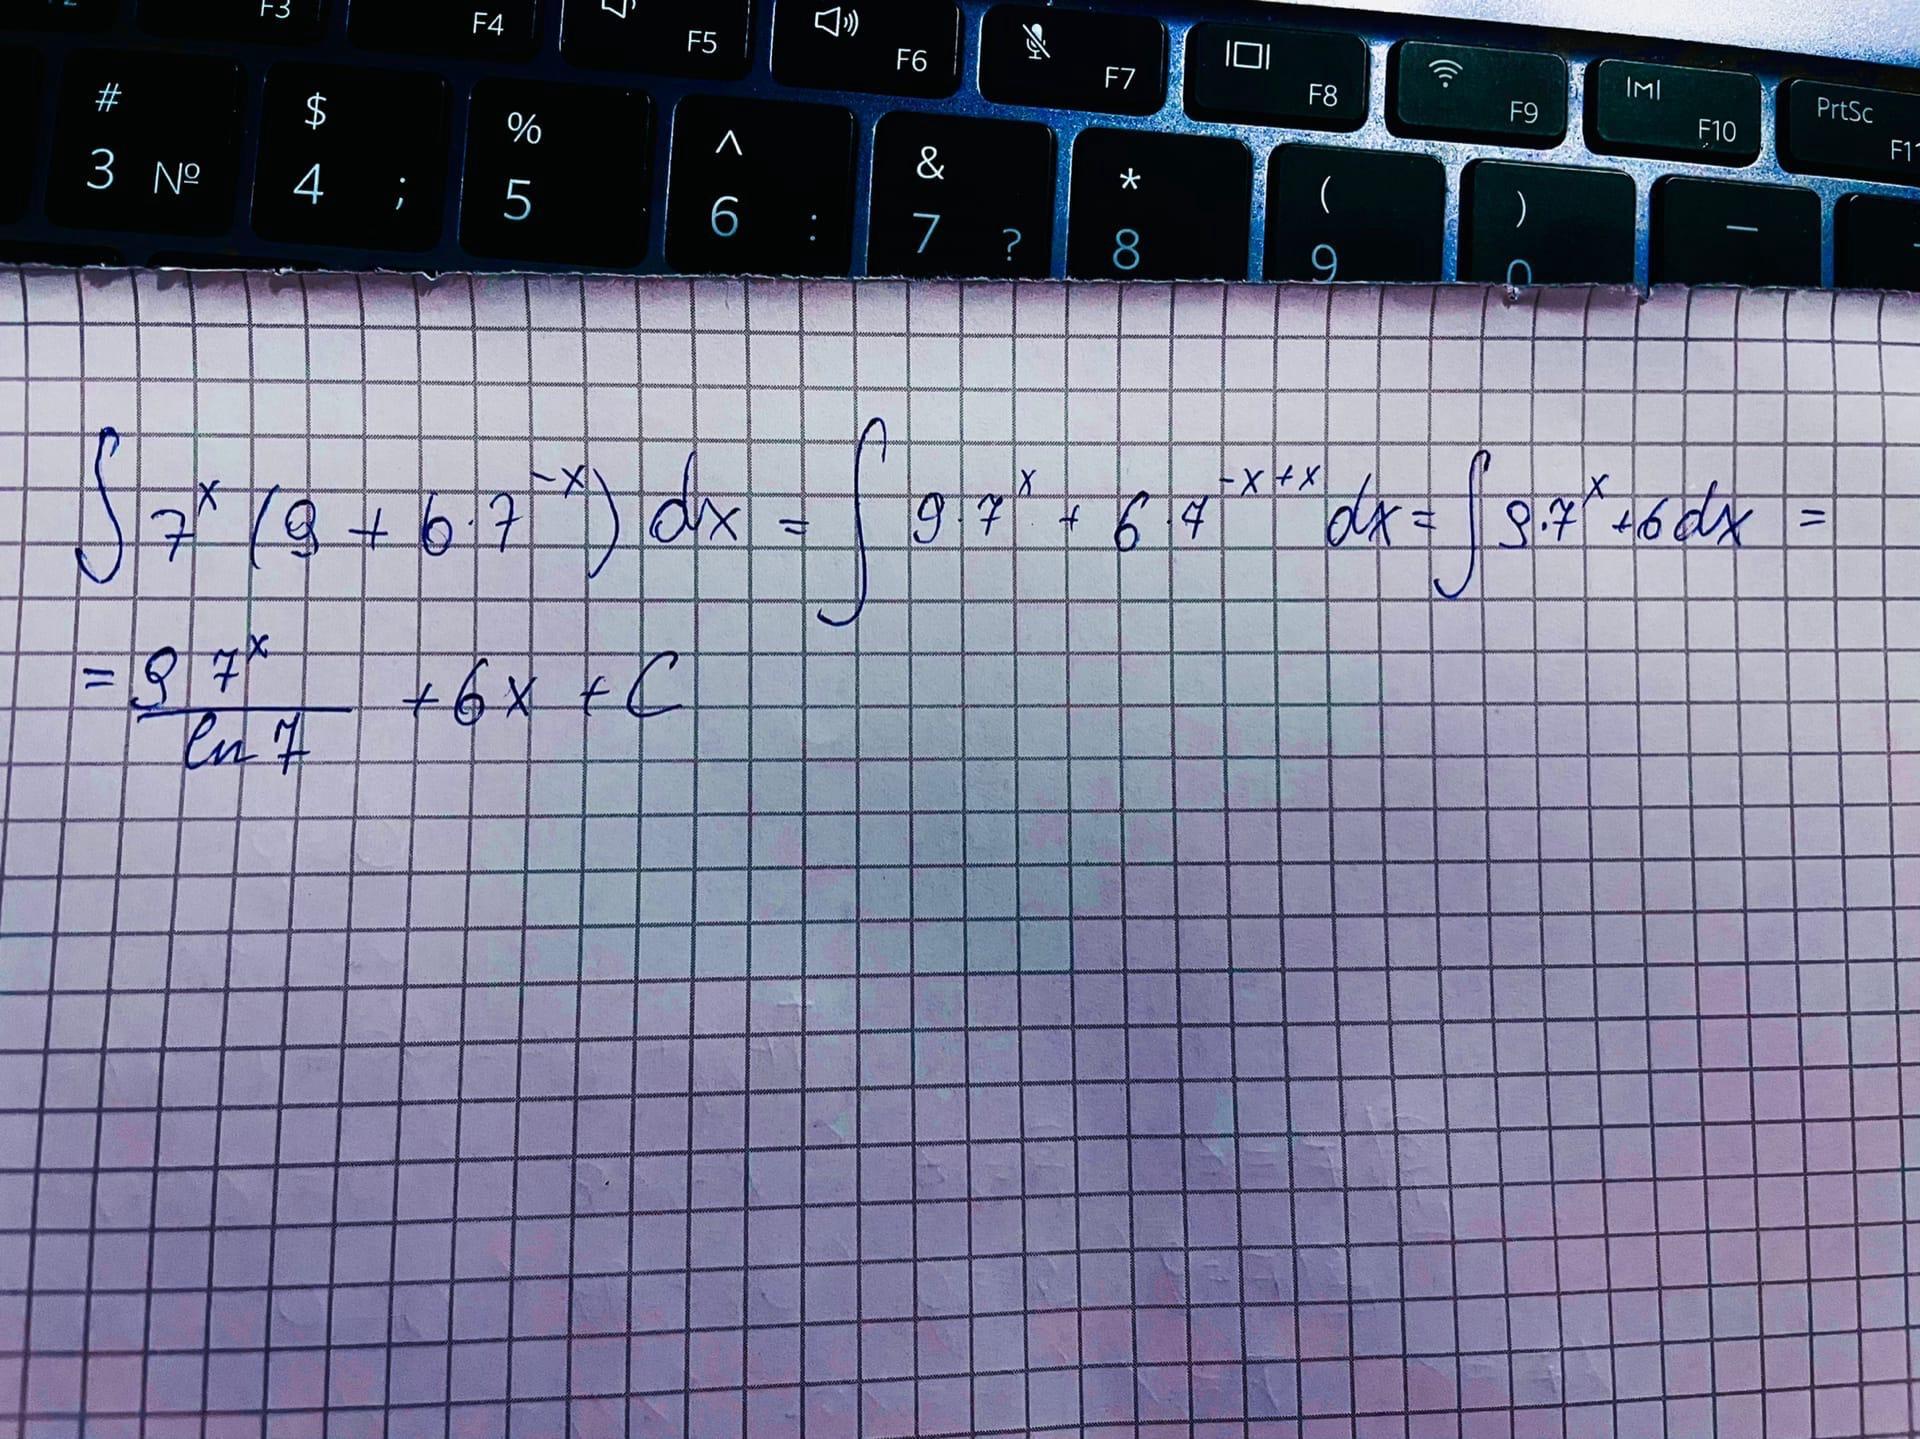 F3 F4 F5 F6 F7 F8 F9 F10 PrtSc F11
# $ % ^ & * ( ) —
3 № 4 ; 5 6 : 7 ? 8 9 0
∫ 7^x (9 + 6·7^{-x}) dx = ∫ 9·7^x + 6·7^{-x+x} dx = ∫ 9·7^x + 6 dx =
= \frac{9 7^x}{ln 7} + 6x + C